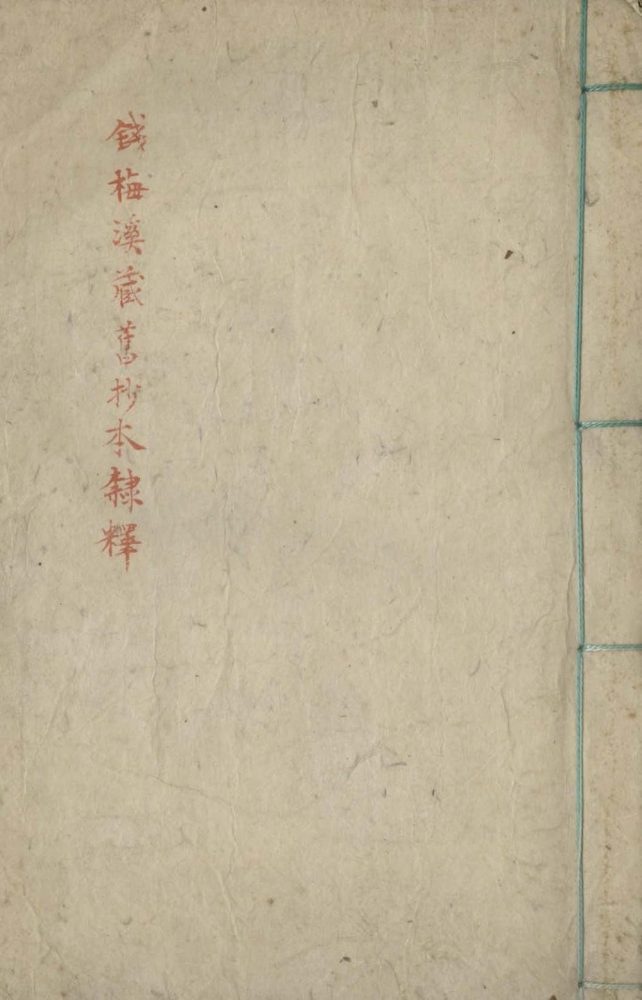 錢梅溪藏舊抄本隸釋